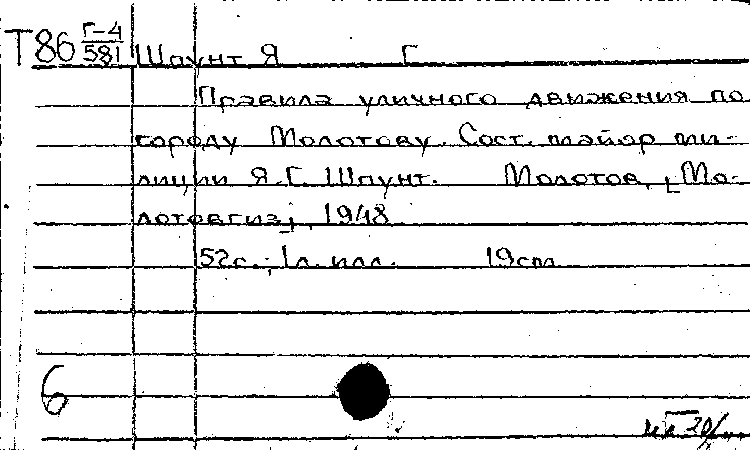 Т86 Г-4/581 Шпунт Я Г
Правила уличного движения по
городу Молотову. Сост. майор ми-
лиции Я.Г. Шпунт. Молотов, [Мо-
лотовгиз], 1948
52с.; 1л. илл. 19см
6